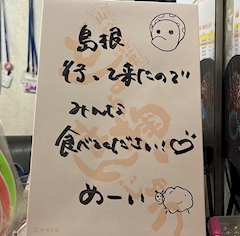 島根
行って来たので
みんな
食べてください！♡
めーい